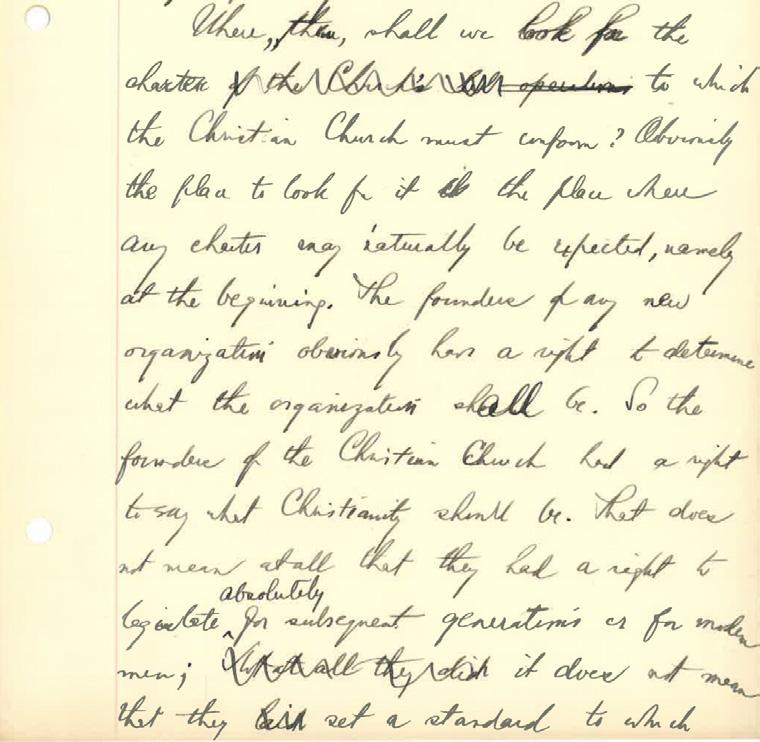 Where, then, shall we look for the
charter of the Church's operations to which
the Christian Church must conform? Obviously
the place to look for it is the place where
any charter may naturally be expected, namely
at the beginning. The founders of any new
organization obviously have a right to determine
what the organization shall be. So the
founders of the Christian Church had a right
to say what Christianity should be. That does
not mean at all that they had a right to
absolutely
legislate for subsequent generations or for modern
men; What all they did it does not mean
that they set a standard to which